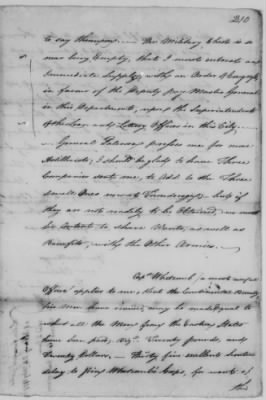 210
to say thereupon. — The Military Chest is so
near being Empty, that I must entreat an
Immediate Supply, with an Order of Congress
in favour of the Deputy Pay Master General
in this Department, upon the Superintendents
of the Loan and Lottery Offices in this City. —
General Patterson presses me for more
Artillerists; I should be glad to have Three
Companies sent me, to Add to the Three
small Ones now at Ticonderoga; but if
they are not readily to be Obtained, we must
be content to share Wants, as well as
Benefits, with the Other Armies. —
Capt. Whitcomb, a most useful
Officer, applies to me, that the Continental Bounty
his men have received, may be made equal to
what all the Men from the Eastern States
have been paid, Viz. Twenty pounds, and
Twenty Dollars. — Thirty five excellent hunters
delay to Join Whitcomb's Corps, for want of
this